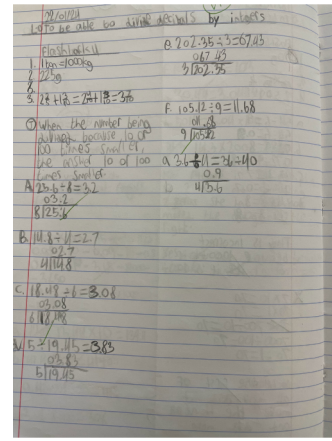 L.O To be able to divide decimals by integers
flashback 4
1. 1 ton = 1000kg
2. 225g
3.
① When the number being
100 times smaller,
the answer 10 or 100
times smaller.
A. 25.6÷8=3.2
03.2
8|25.6
B. 14.8÷4=2.7
02.7
4|14.8
C. 18.48÷6=3.08
03.08
6|18.48
5÷19.45=3.83
03.83
5|19.45
e. 202.35÷3=67.43
067.43
3|202.35
F. 105.12÷9=11.68
011.68
9|105.12
0.9
4|3.6